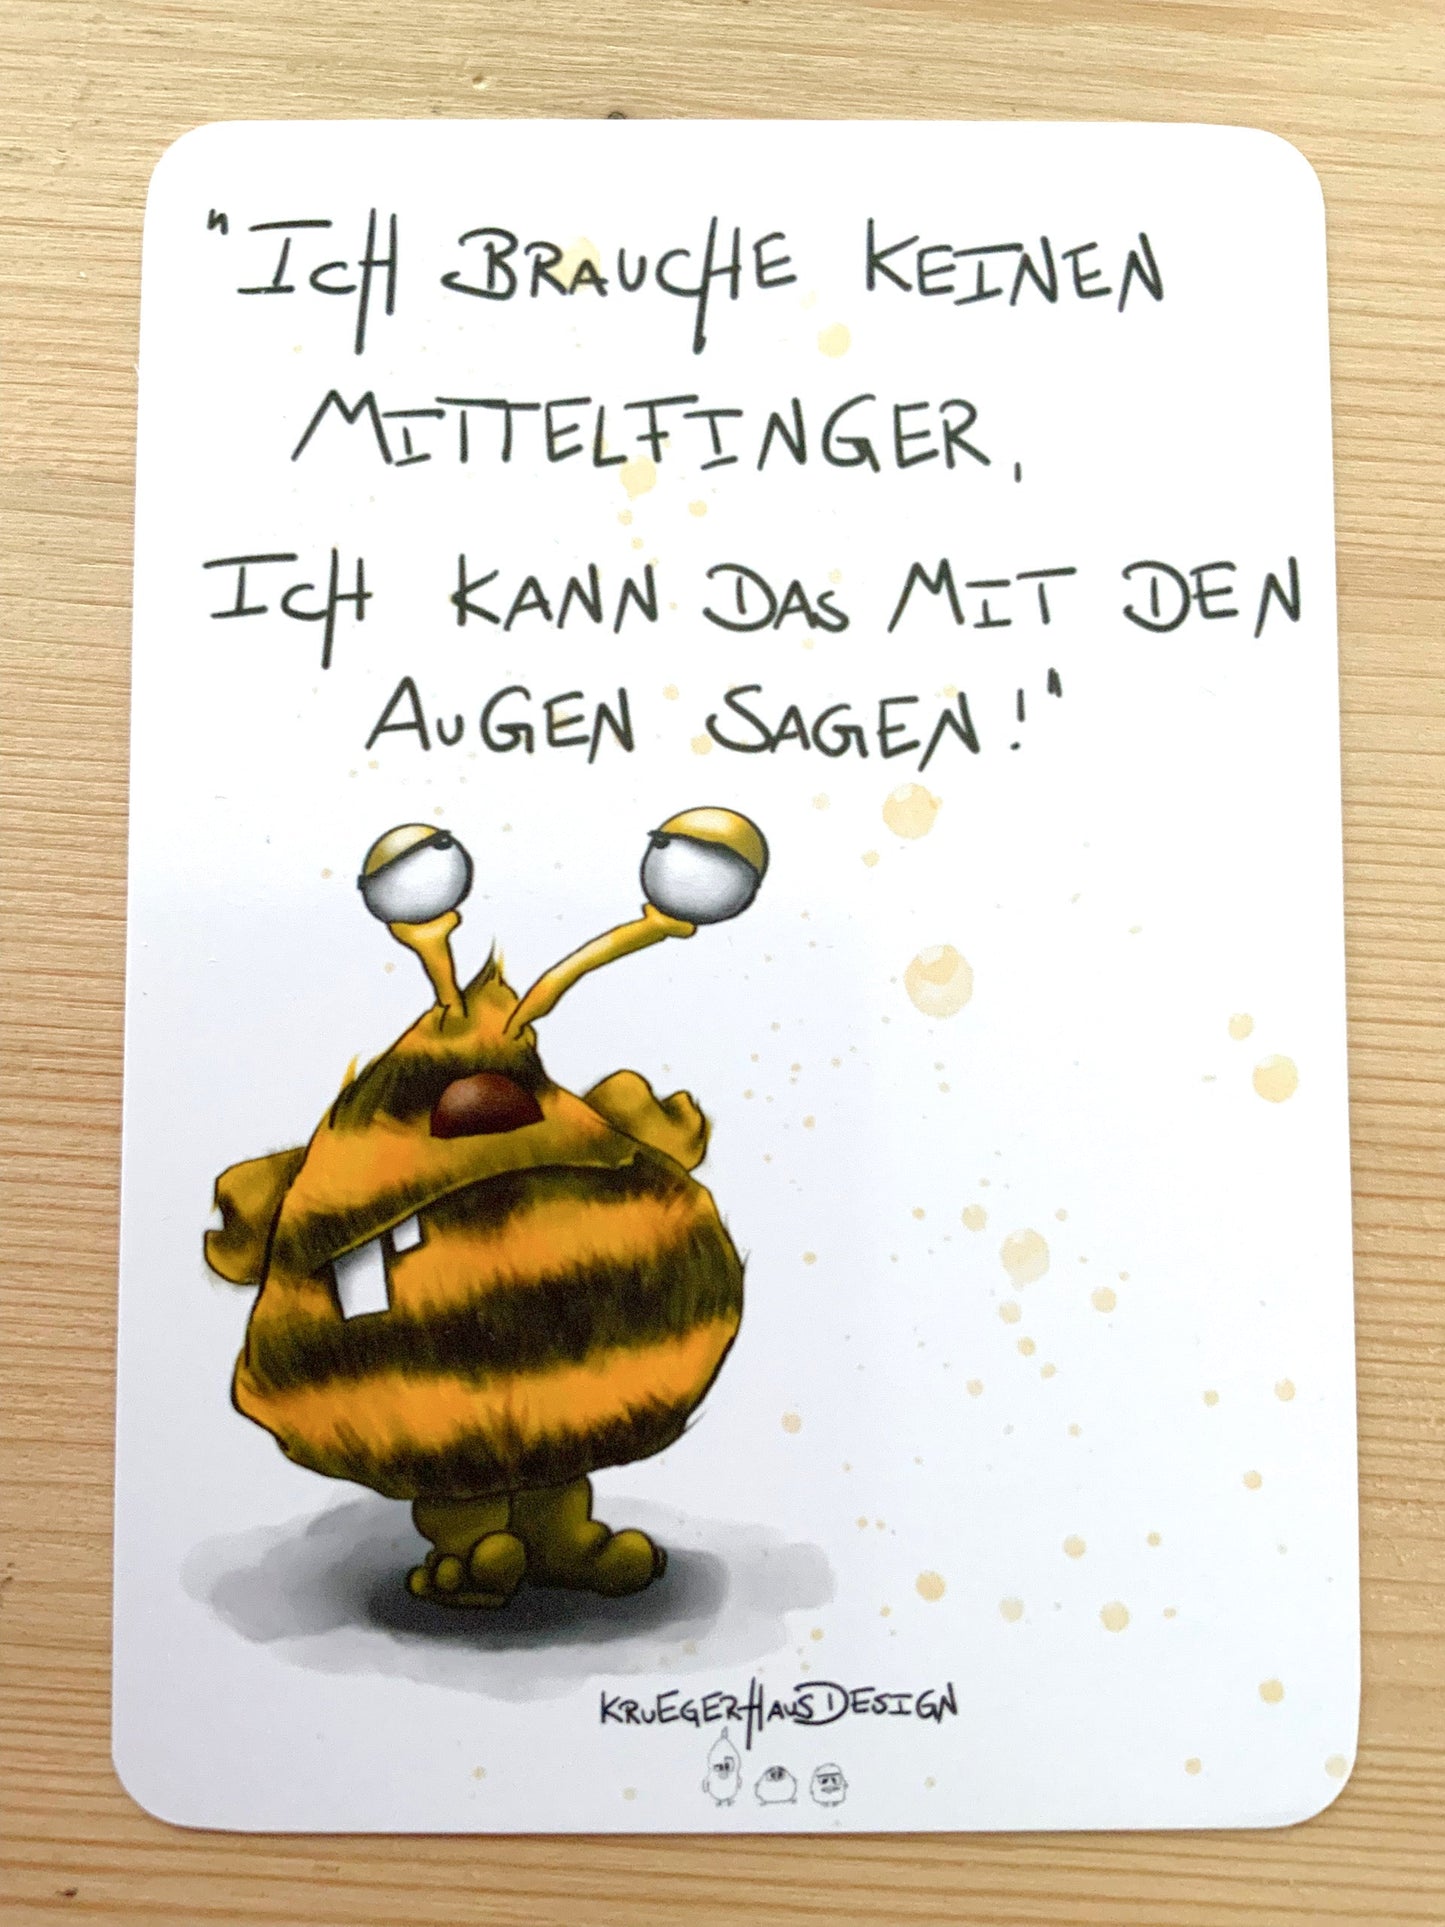 "Ich brauche keinen
Mittelfinger,
Ich kann das mit den
Augen sagen!"
KruegerHausDesign